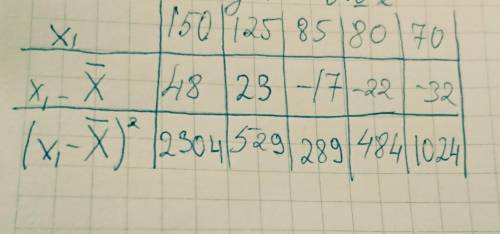 x₁ 150 125 85 80 70
x₁ - X̅ 48 23 -17 -22 -32
(x₁ - X̅)² 2304 529 289 484 1024